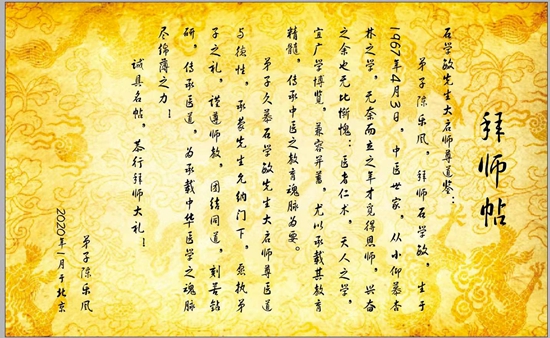 拜师帖
石学敏先生大启师尊道鉴：
弟子陈乐风，拜师石学敏，生于
1967年4月3日，中医世家，从小仰慕杏
林之学，无奈而立之年才觅得恩师，兴奋
之余也无比惭愧：医者仁术，天人之学，
宜广学博览，兼容并蓄，尤以承载其教育
精髓，传承中医之教育魂脉为要。
弟子久慕石学敏先生大启师尊医道
与德性，承蒙先生允纳门下，愿执弟
子之礼，谨遵师教，团结同道，刻苦钻
研，传承医道，为承载中华医学之魂脉
尽绵薄之力！
诚具名帖，恭行拜师大礼！
弟子陈乐风
2020年1月于北京